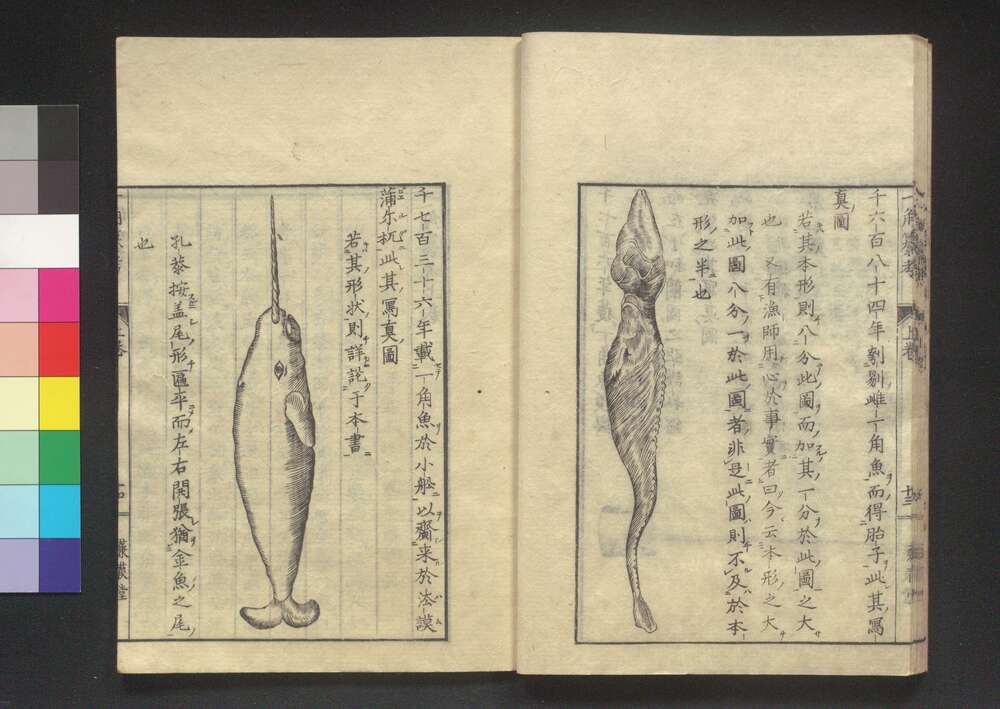 千六百八十四年剖剔雌一角魚而得胎子此其寫
真圖
若其本形則八分此圖而加其一分於此圖之大
也又有漁師用心於事實者曰今云本形之大
加此圖八分一於此圖者非是此圖則不及於本
形之半也
千七百三十六年載一角魚於小船以齎来於法謨
蒲尓杌此其寫真圖
若其形状則詳説于本書
孔恭按盖尾形匾平而左右開張猶金魚之尾
也